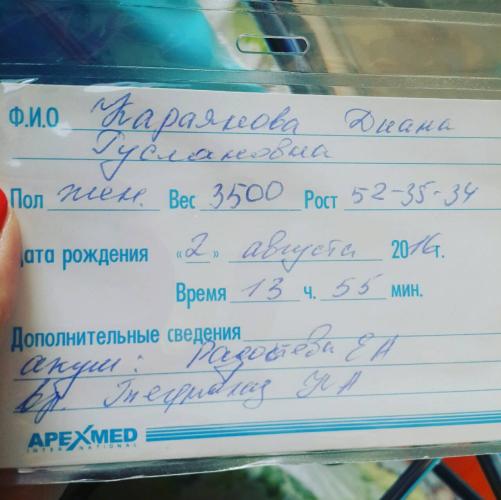 Ф.И.О Караянова Диана
Руслановна
Пол жен. Вес 3500 Рост 52-35-34
Дата рождения «2» августа 2016г.
Время 13 ч. 55 мин.
Дополнительные сведения
акуш: ЕА
вр. НА
APEXMED
INTERNATIONAL